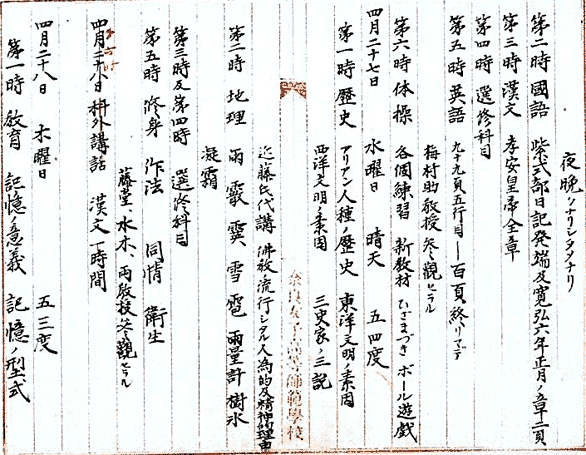 夜晩ソナリシタダナリ
第二時 國語 紫式部日記発端及寛弘六年正月ノ章二頁
第三時 漢文 孝安皇帝全章
第四時 選修科目
第五時 英語 九十九頁五行目―百頁終リマデ
梅村助教授参観セラル
第六時 体操 各個練習 新教材 ひざまづき ボール遊戯
四月二十七日 水曜日 晴天 五四度
第一時 歴史 アリアン人種ノ歴史 東洋文明ノ素因
西洋文明ノ素因 三史家ノ三説
奈良女子高等師範學校
近藤氏代講 佛教流行シタル人為的及精神的理由
第二時 地理 雨 霰 雹 雪 雹 雨量計 樹氷
凝霜
第三時及第四時 選修科目
第五時 修身 作法 同情 衛生
藤堂、水木、両教授参観セラル
四月二十八日 科外講話 漢文一時間
四月二十八日 木曜日 五三度
第一時 教育 記憶ノ意義 記憶ノ型式